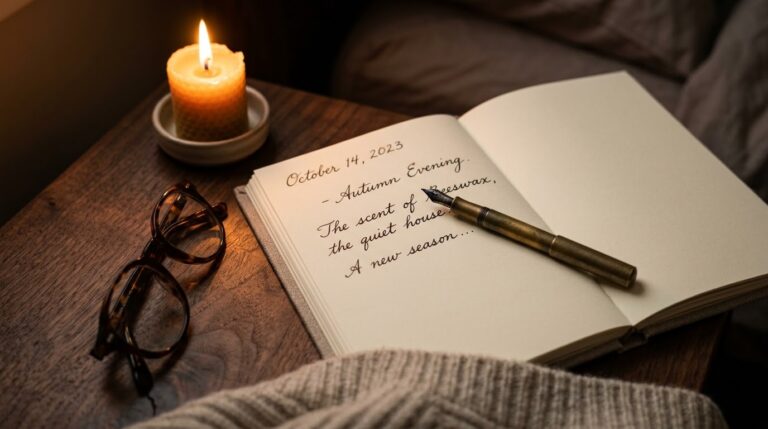 October 14, 2023
- Autumn Evening.
The scent of Beeswax,
the quiet house
A new season...